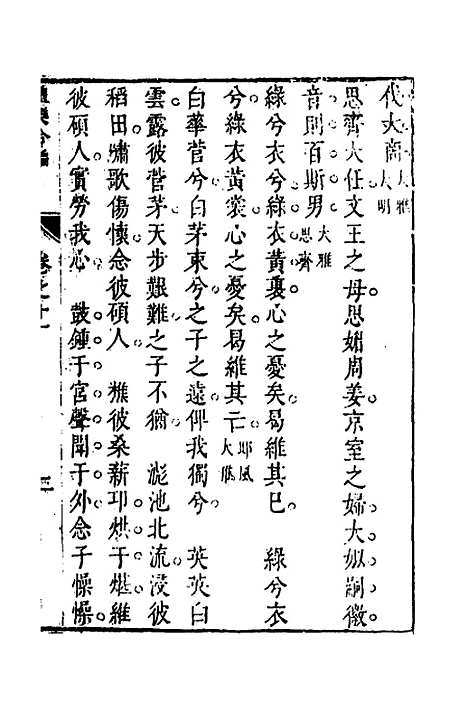 代大商大雅大明
思齊大任文王之母思媚周姜京室之婦大姒嗣徽
音則百斯男大雅思齊
綠兮衣兮綠衣黃裏心之憂矣曷維其已　綠兮衣
兮綠衣黃裳心之憂矣曷維其亡邶風
白華菅兮白茅束兮之子之遠俾我獨兮　英英白
雲露彼菅茅天步艱難之子不猶　滮池北流浸彼
稻田嘯歌傷懷念彼碩人　樵彼桑薪卬烘于煁維
彼碩人實勞我心　鼓鍾于宮聲聞于外念子懆懆
卷之十一
三